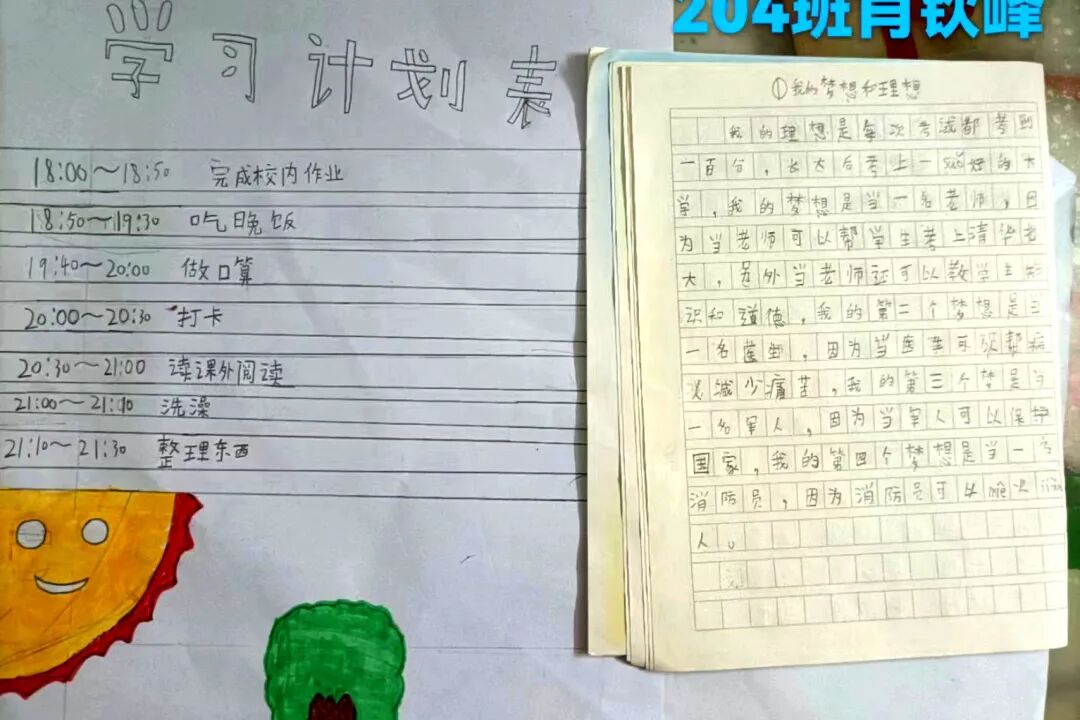 204班肖钦峰
学习计划表
18:00～18:50 完成校内作业
18:50～19:30 吃晚饭
19:40～20:00 做口算
20:00～20:30 打卡
20:30～21:00 读课外阅读
21:00～21:10 洗澡
21:10～21:30 整理东西
①我的梦想和理想
我的理想是每次考试都考到
一百分，长大后考上一所好的大
学，我的梦想是当一名老师，因
为当老师可以帮学生考上清华北
大，另外当老师还可以教学生知
识和道德，我的第二个梦想是当
一名医生，因为当医生可以帮病
人减少痛苦，我的第三个梦是当
一名军人，因为当军人可以保护
国家，我的第四个梦想是当一名
消防员，因为消防员可以
人。